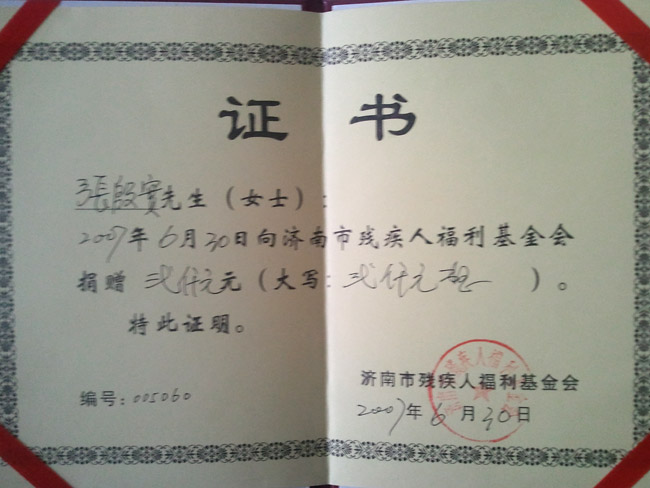 证 书
張殷實先生（女士）：
2007年6月30日向济南市残疾人福利基金会
捐赠 弍仟元元（大写：弍仟元整 ）。
特此证明。
济南市残疾人福利基金会
编号：005060
2007年6月30日